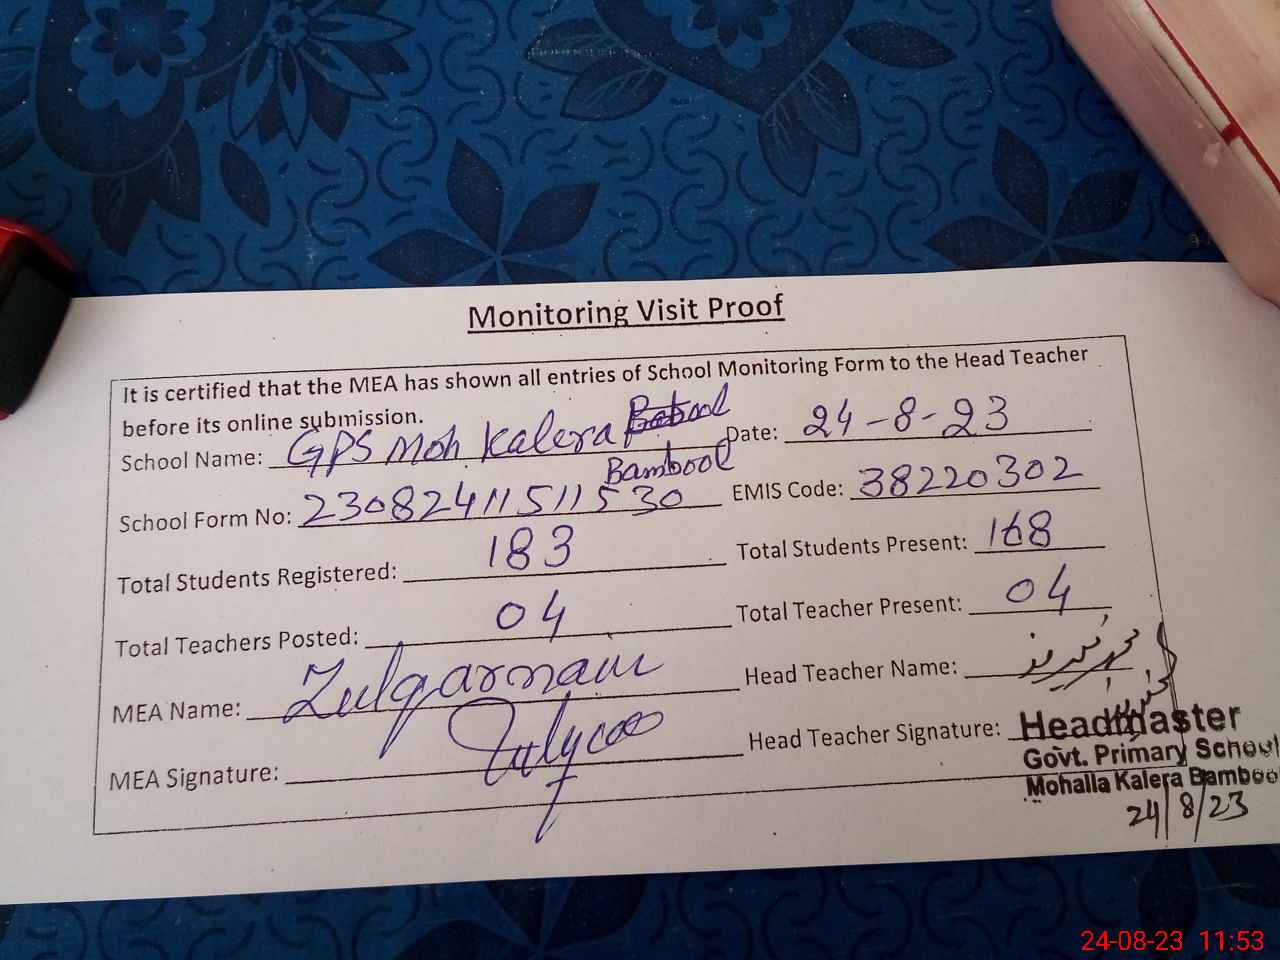 Monitoring Visit Proof
It is certified that the MEA has shown all entries of School Monitoring Form to the Head Teacher
before its online submission.
School Name: GPS Moh Kalera Date: 24-8-23
Bambool
School Form No: 23082411511530 EMIS Code: 38220302
Total Students Registered: 183 Total Students Present: 168
Total Teachers Posted: 04 Total Teacher Present: 04
MEA Name: Zulqarnain Head Teacher Name:
MEA Signature: Head Teacher Signature:
Headmaster
Govt. Primary School
Mohalla Kalera Bambool
24/8/23
24-08-23 11:53